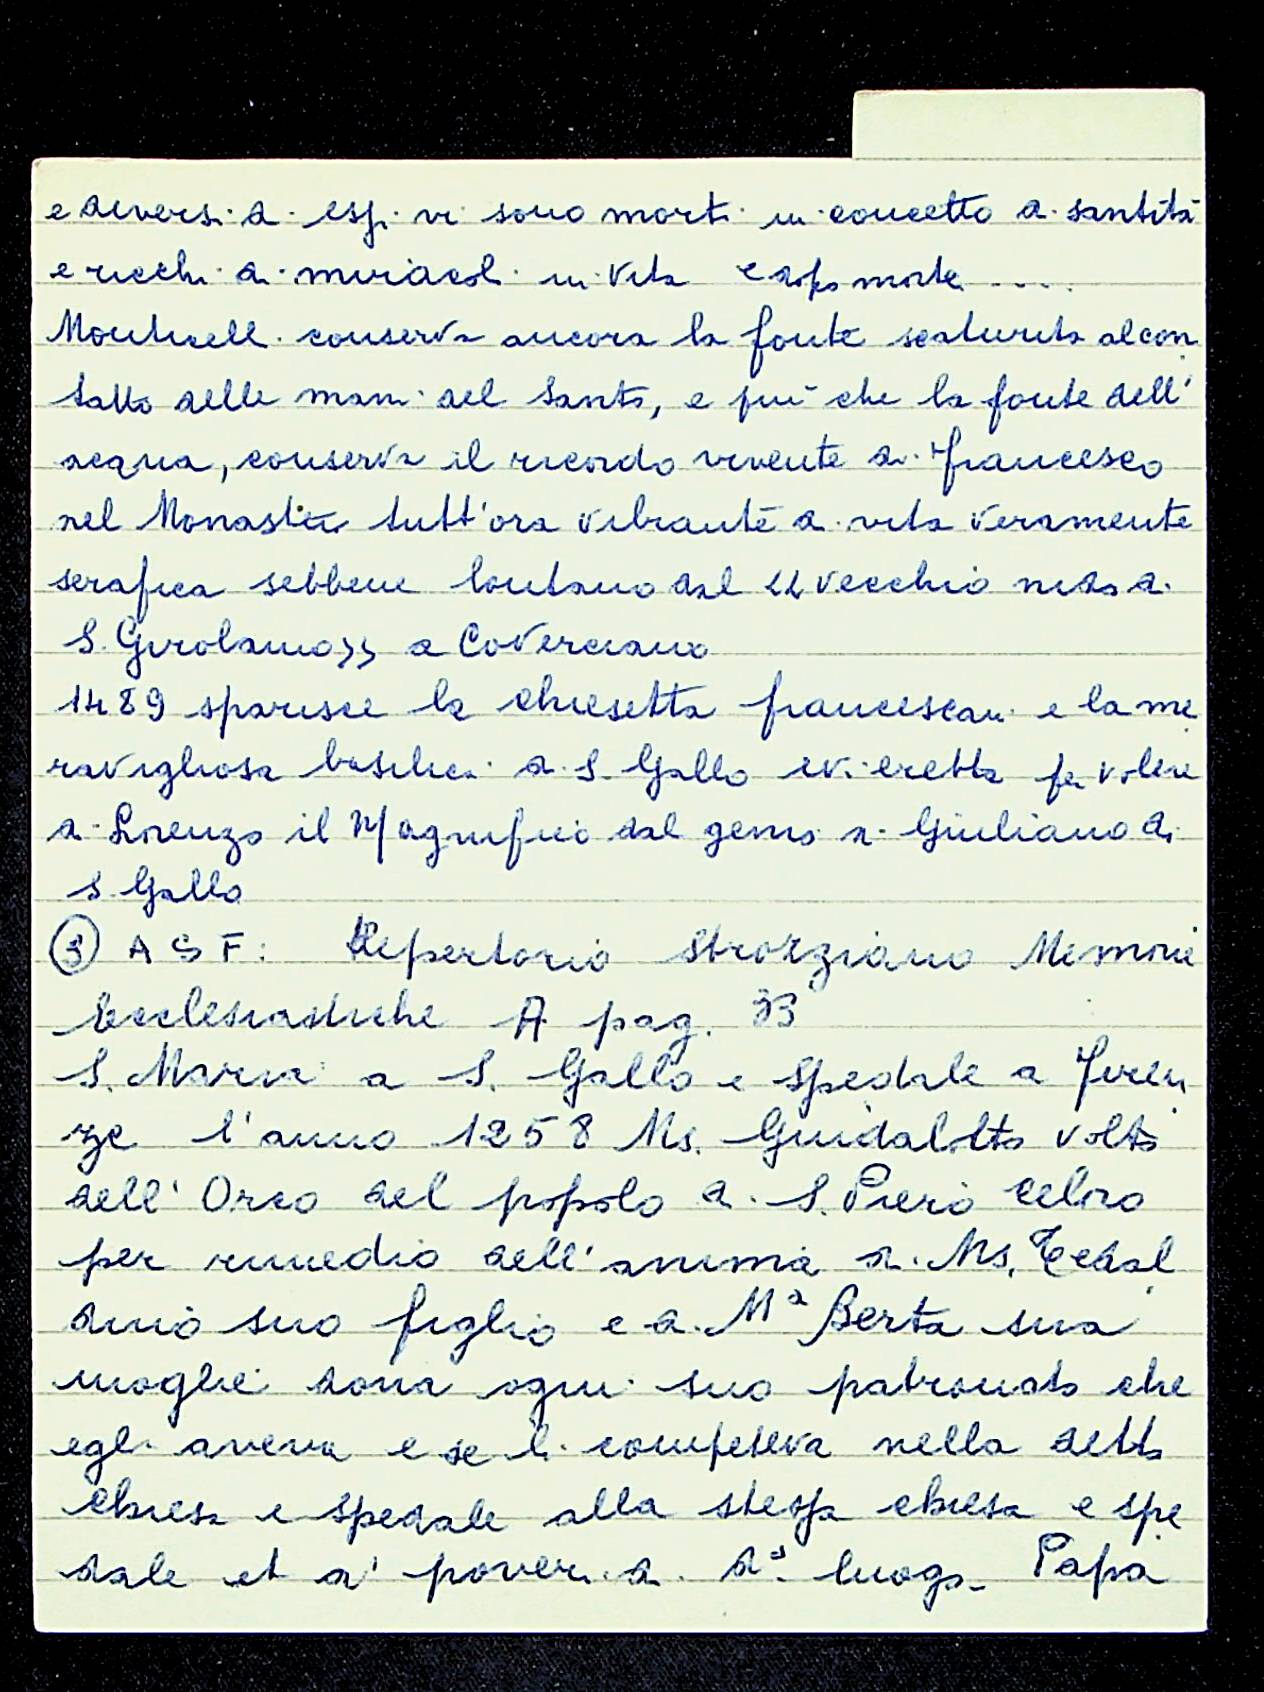 e diversi di essi vi sono morti in concetto di santità
e ricchi di miracoli in vita e dopo morte ....
Monticelli conserva ancora la fonte scaturita al con
tatto delle mani del Santo, e più che la fonte dell'
acqua, conserva il ricordo vivente di Francesco
nel Monastero tutt'ora vibrante di vita veramente
serafica sebbene lontano dal "vecchio nido di
S. Girolamo" a Coverciano
1489 sparisce la chiesetta francescana e la me
ravigliosa basilica di S. Gallo vi eretta per volere
di Lorenzo il Magnifico dal genio di Giuliano di
S. Gallo
③ ASF: Repertorio Strozziano Memorie
Ecclesiastiche A pag. 33
S. Maria a S. Gallo e Spedale a Firen
ze l'anno 1258 Ms. Guidalotto Volto
dell'Orco del popolo di S. Piero Celoro
per rimedio dell'anima di Ms. Tedal
dino suo figlio e di Mª Berta sua
moglie dona ogni suo patronato che
egli aveva e se li competeva nella detta
chiesa e spedale alla stessa chiesa e spe
dale et a' poveri di dº luogo. Papa